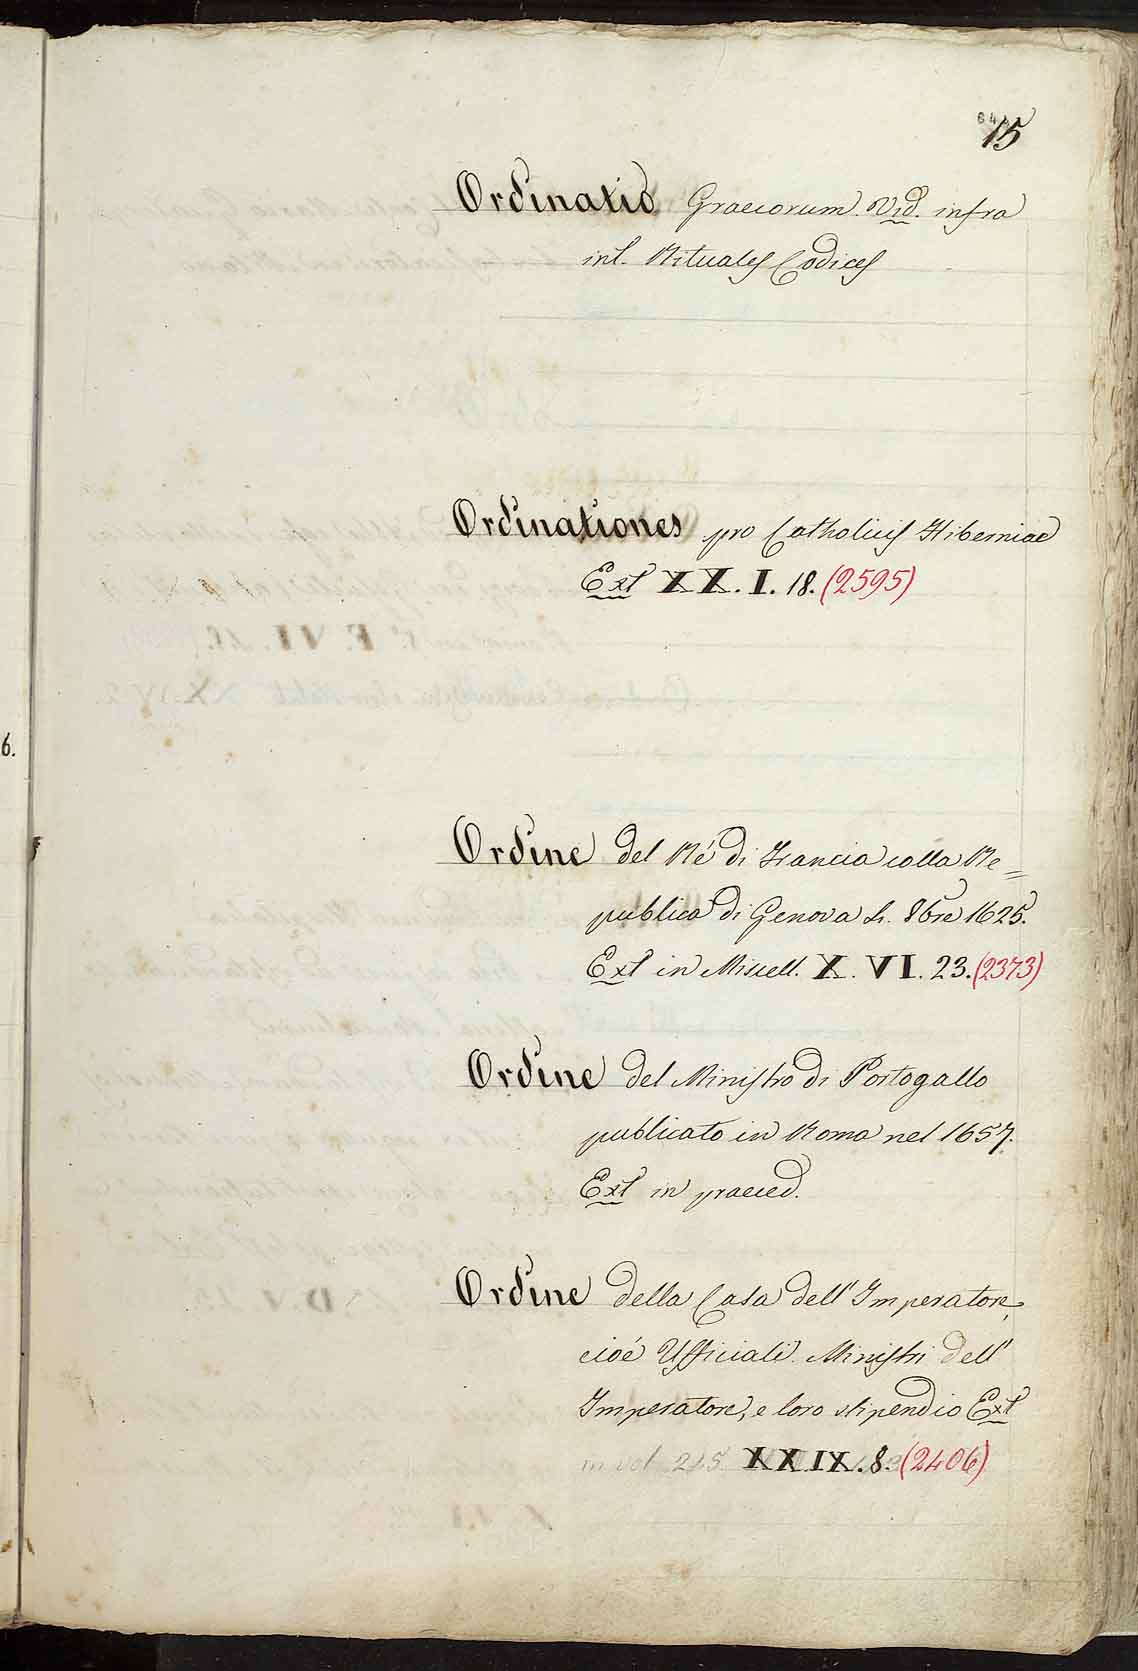 15
Ordinatio Graecorum. Vid. infra
int. Rituales Codices
Ordinationes pro Catholicis Hiberniae
Ext XX. I. 18. (2595)
6.
Ordine del Ré di Francia colla Re=
publica di Genova li. 8bre 1625.
Ext in Miscell. X. VI. 23. (2373)
Ordine del Ministro di Portogallo
publicato in Roma nel 1657.
Ext in praeced.
Ordine della Casa dell'Imperatore,
cioé Ufficiali. Ministri dell'
Imperatore, e loro stipendio Ext
in vol 215 XX.IX.8. (2406)